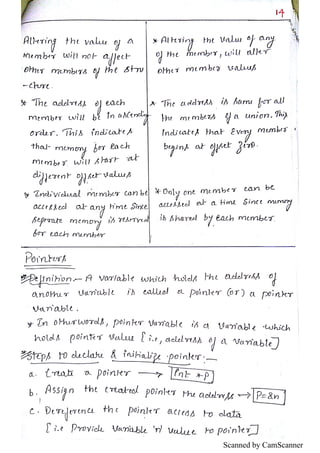 14
Altering the value of a
member will not affect
other members of the stru
-cture.
* The address of each
member will be in ascending
order. This indicates
that memory for each
member will start at
different offset values
* Individual member can be
accessed at any time since
seperate memory is reserved
for each member
* Altering the value of any
of the member, will alter
other member values
* The address is same for all
the members of a union. This
indicates that every member
begins at offset zero.
* Only one member can be
accessed at a time since memory
is shared by each member.
Pointers
* Definition:- A variable which holds the address of
another variable is called a pointer (or) a pointer
variable.
* In other words, pointer variable is a variable which
holds pointer value [i.e, address of a variable]
* Steps to declare & initialize pointer:-
a. Create a pointer → int *p
b. Assign the created pointer the address → P=&n
c. Dereference the pointer access to data
[i.e Provide variable 'n' value to pointer]
Scanned by CamScanner